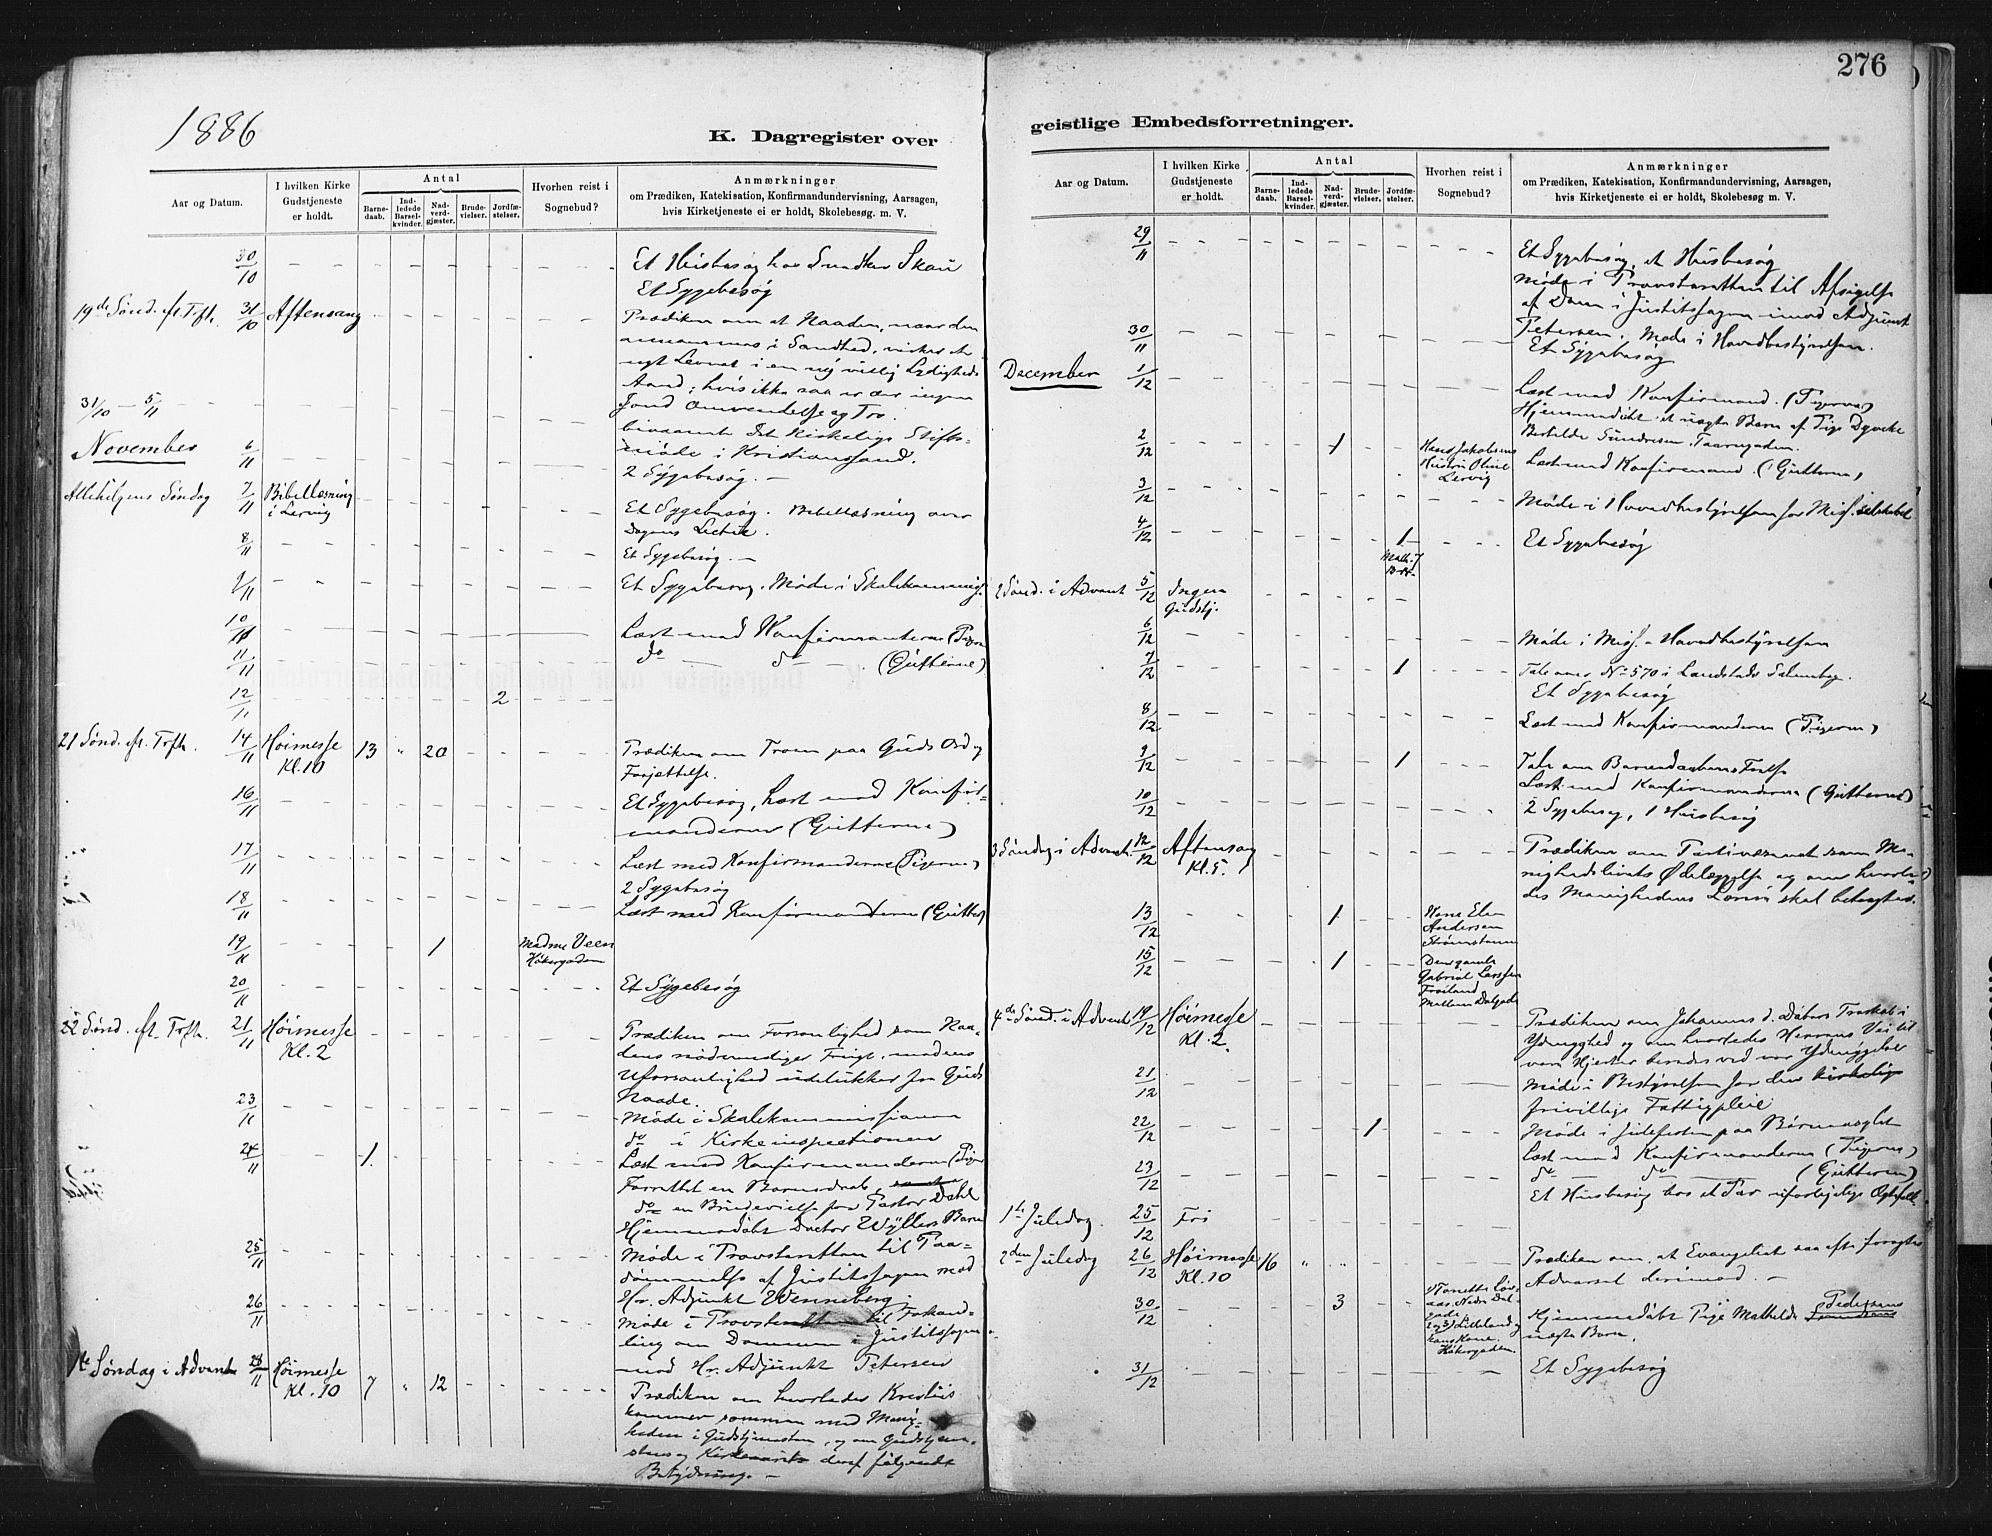 276
1886
K. Dagregister over
geistlige Embedsforretninger.
Aar og Datum.
I hvilken Kirke Gudstjeneste er holdt.
Antal
Barnedaab.
Indledede Barselkvinder.
Nadverdgjæster.
Brudevielser.
Jordfæstelser.
Hvorhen reist i Sognebud?
Anmærkninger
om Prædiken, Katekisation, Konfirmandundervisning, Aarsagen, hvis Kirketjeneste ei er holdt, Skolebesøg m. V.
30/10 Et Husbesøg hos Snedker Skau
Et Sygebesøg
19de Sønd. ft. Trft. 31/10 Aftensang
Prædiken om at Naaden, naar den
annammes i Sandhed, virker et
nyt Levnet i en ny villig Lydigheds
Aand; hvis ikke saa er der ingen
Omvendelse og Tro.
31/10 – 5/11 bivaanede det kirkelige Stifts-
møde i Kristianssand.
November 6/11 2 Sygebesøg. —
Allehelgens Søndag 7/11 Bibellæsning
i Lervig
Et Sygebesøg. Bibellæsning over
Dagens Lectie.
8/11 Et Sygebesøg. —
9/11 Et Sygebesøg. Møde i Skolekommiss.
10/11 Læst med Konfirmanterne (Pigerne
11/11 do — do — (Gutterne)
12/11 2
21 Sønd. ft. Trft. 14/11 Høimesse 13 " 20
Kl. 10
Prædiken om Troen paa Guds Ord og
Forjættelse.
16/11 Et Sygebesøg, Læst med Konfir-
manderne (Gutterne)
17/11 Læst med Konfirmanderne (Pigerne)
2 Sygebesøg
18/11 Læst med Konfirmanderne (Gutter)
19/11 1 Madme Veen
Høkergaden
20/11 Et Sygebesøg
22 Sønd. ft. Trft. 21/11 Høimesse
Kl. 2
Prædiken om Forsonlighed som Naa-
dens nødvendige Frugt, medens
Uforsonlighed udelukker fra Guds
Naade.
23/11 Møde i Skolekommissionen
do i Kirkeinspectionen
24/11 1. Læst med Konfirmanderne (Piger
Forrettet en Barnedaab
do en Brudevielse for Pastor Dahl
Hjemmedøbt Doctor Wyllers Barn
25/11 Møde i Provsteretten til Paa-
dømmelse af Justitssagen mod
Hr. Adjunkt Wenneberg.
26/11 Møde i Provsteretten til Forhand-
ling om Dommen i Justitssagen
mod Hr. Adjunkt Petersen
1ste Søndag i Advent 28/11 Høimesse 7 " 12
Kl. 10
Prædiken om hvorledes Kristus
kommer sammen med Menig-
heden i Gudstjenesten, og om Gudstjene-
stens og Kirkeaarets deraf følgende
Betydning. —
Aar og Datum.
I hvilken Kirke Gudstjeneste er holdt.
Antal
Barnedaab.
Indledede Barselkvinder.
Nadverdgjæster.
Brudevielser.
Jordfæstelser.
Hvorhen reist i Sognebud?
Anmærkninger
om Prædiken, Katekisation, Konfirmandundervisning, Aarsagen, hvis Kirketjeneste ei er holdt, Skolebesøg m. V.
29/11 Et Sygebesøg, et Husbesøg
Møde i Provsteretten til Afsigelse
af Dom i Justitssagen imod Adjunkt
Petersen. Møde i Hovedbestyrelsen.
30/11 Et Sygebesøg
December 1/12 Læst med Konfirmand. (Pigerne)
Hjemmedøbt et uægte Barn af Pige Dyveke
Bertilde Gundersen Taarngaden.
2/12 1 Hans Jakobsens
Hustru Oline
Lervig
Læst med Konfirmand. (Gutterne)
3/12 Møde i Hovedbestyrelsen for Miss. selskabet
4/12 1 Et Sygebesøg
2 Sønd. i Advent 5/12 Ingen
Gudstj.
6/12 Møde i Miss. Hovedbestyrelsen
7/12 1 Tale over No 570 i Landstads Salmebog.
Et Sygebesøg
8/12 Læst med Konfirmanderne (Pigerne)
9/12 1 Tale om Barnedaabens
Læst med Konfirmanderne (Gutterne)
10/12 2 Sygebesøg, 1 Husbesøg
3 Søndag i Advent 12/12 Aftensang
Kl. 5.
Prædiken om Partivæsenet som Me-
nighedslivets Ødelæggelse og om hvorle-
des Menighedens Lærere skal betragtes.
13/12 1
Andersen
15/12 1 Den gamle
Gabriel Larssen
Frøiland
4de Sønd. i Advent 19/12 Høimesse
Kl. 2.
Prædiken om Johannes d. Døbers Troskab i
Ydmyghed og om hvorledes Herrens Vei til
vore Hjerter beredes ved vor Ydmygelse
21/12 Møde i Bestyrelsen for den kirkelige
frivillige Fattigpleie
22/12 1 Møde i Julefesten paa Børneasylet
Læst med Konfirmanderne (Pigerne)
23/12 do — do — (Gutterne)
Et Husbesøg hos et Par uforligelige Ægtefolk
1ste Juledag. 25/12 Fri
2den Juledag 26/12 Høimesse 16 " "
Kl. 10
Prædiken om, at Evangeliet saa ofte foragtes
Advarsel derimod. —
30/12 3
Høkergaden.
Hjemmedøbt Pige Mathilde Pedersens
uægte Barn.
31/12 Et Sygebesøg